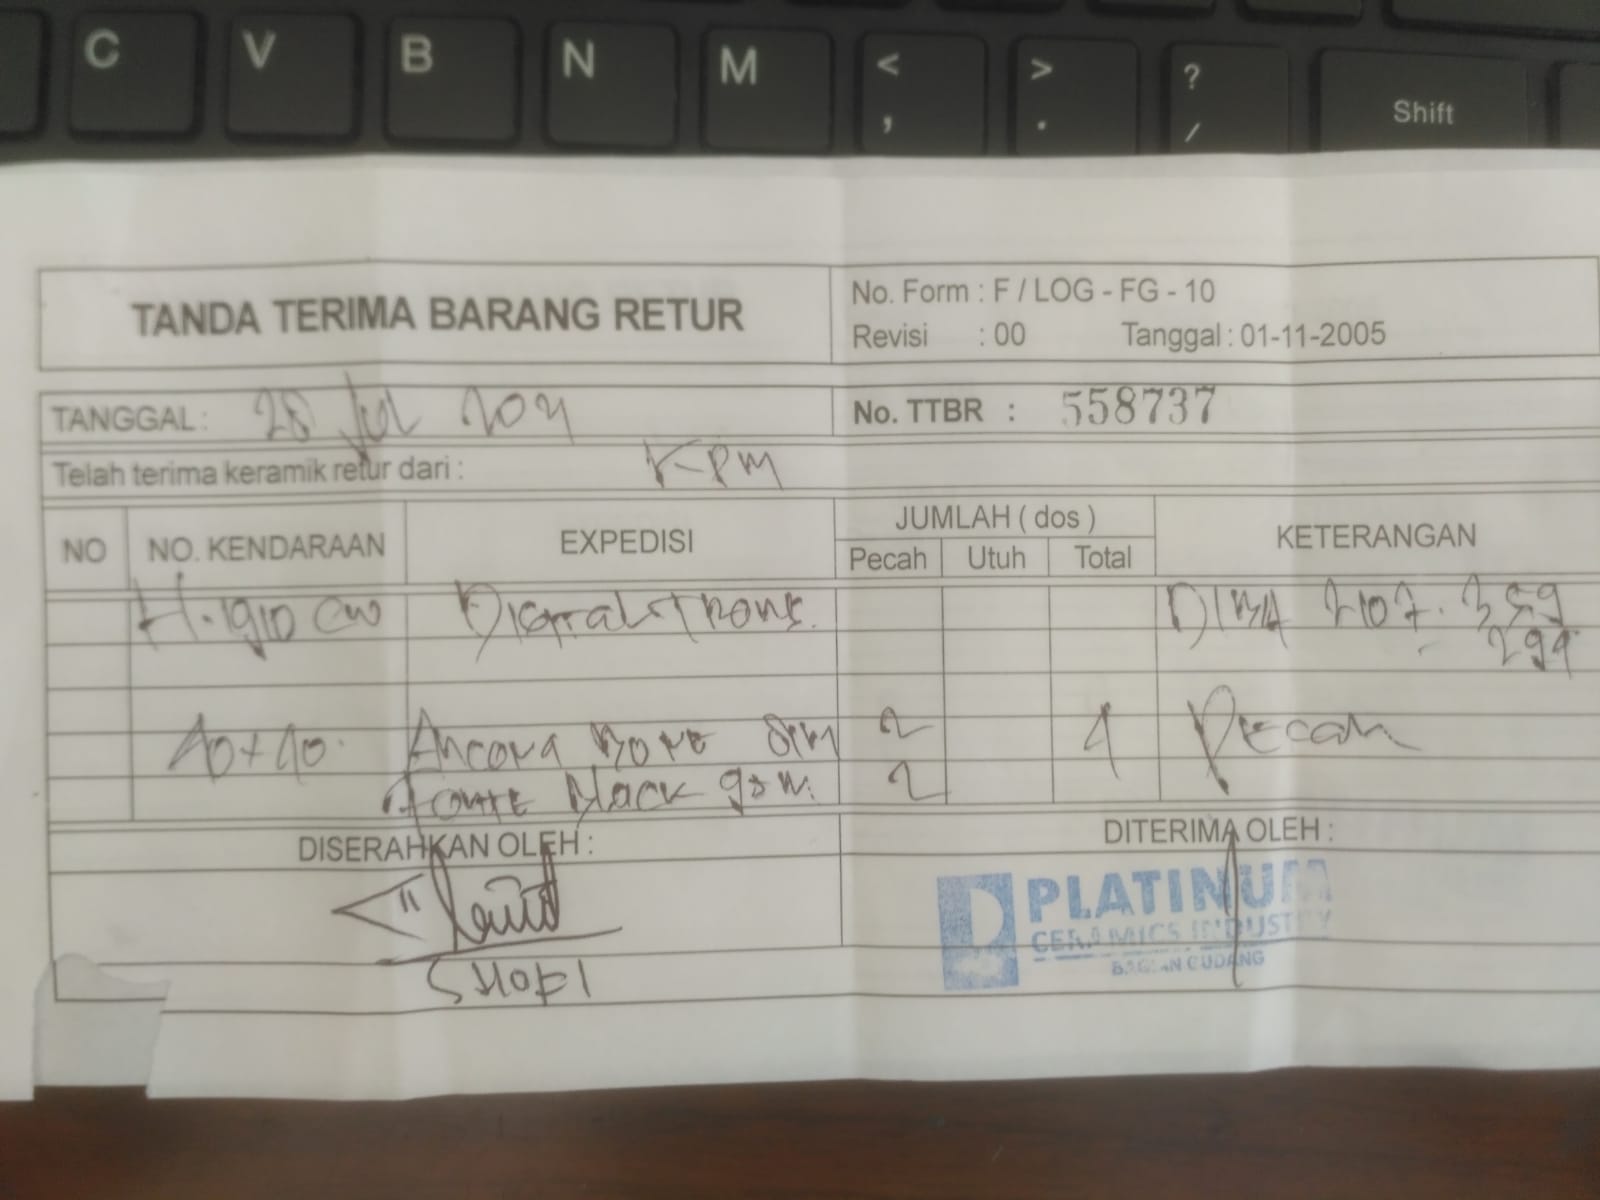 C V B N M < , > . ? / Shift
TANDA TERIMA BARANG RETUR
No. Form : F / LOG - FG - 10
Revisi : 00 Tanggal : 01-11-2005
TANGGAL : 28 Jul
No. TTBR : 558737
Telah terima keramik retur dari : KPM
NO NO. KENDARAAN EXPEDISI JUMLAH ( dos ) KETERANGAN
Pecah Utuh Total
H. 1910 CW 2107. 359
299
40+40. Ancora Bone 2 4 Pecah
Black gsm. 2
DISERAHKAN OLEH :
DITERIMA OLEH :
PLATINUM
CERAMICS INDUSTRY
BAGIAN GUDANG